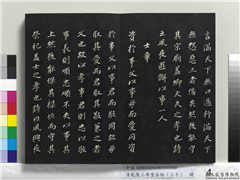 言滿天下無口過行滿天下
無怨惡三者備矣然後能守
其宗廟蓋卿大夫之孝也詩
云夙夜匪懈以事一人
士章
資於事父以事母而愛同資
於事父以事君而敬同故母
取其愛而君取其敬兼之者
父也故以孝事君則忠以敬
事長則順忠順不失以事其
上然後能保其祿位而守其
祭祀蓋士之孝也詩云夙興夜